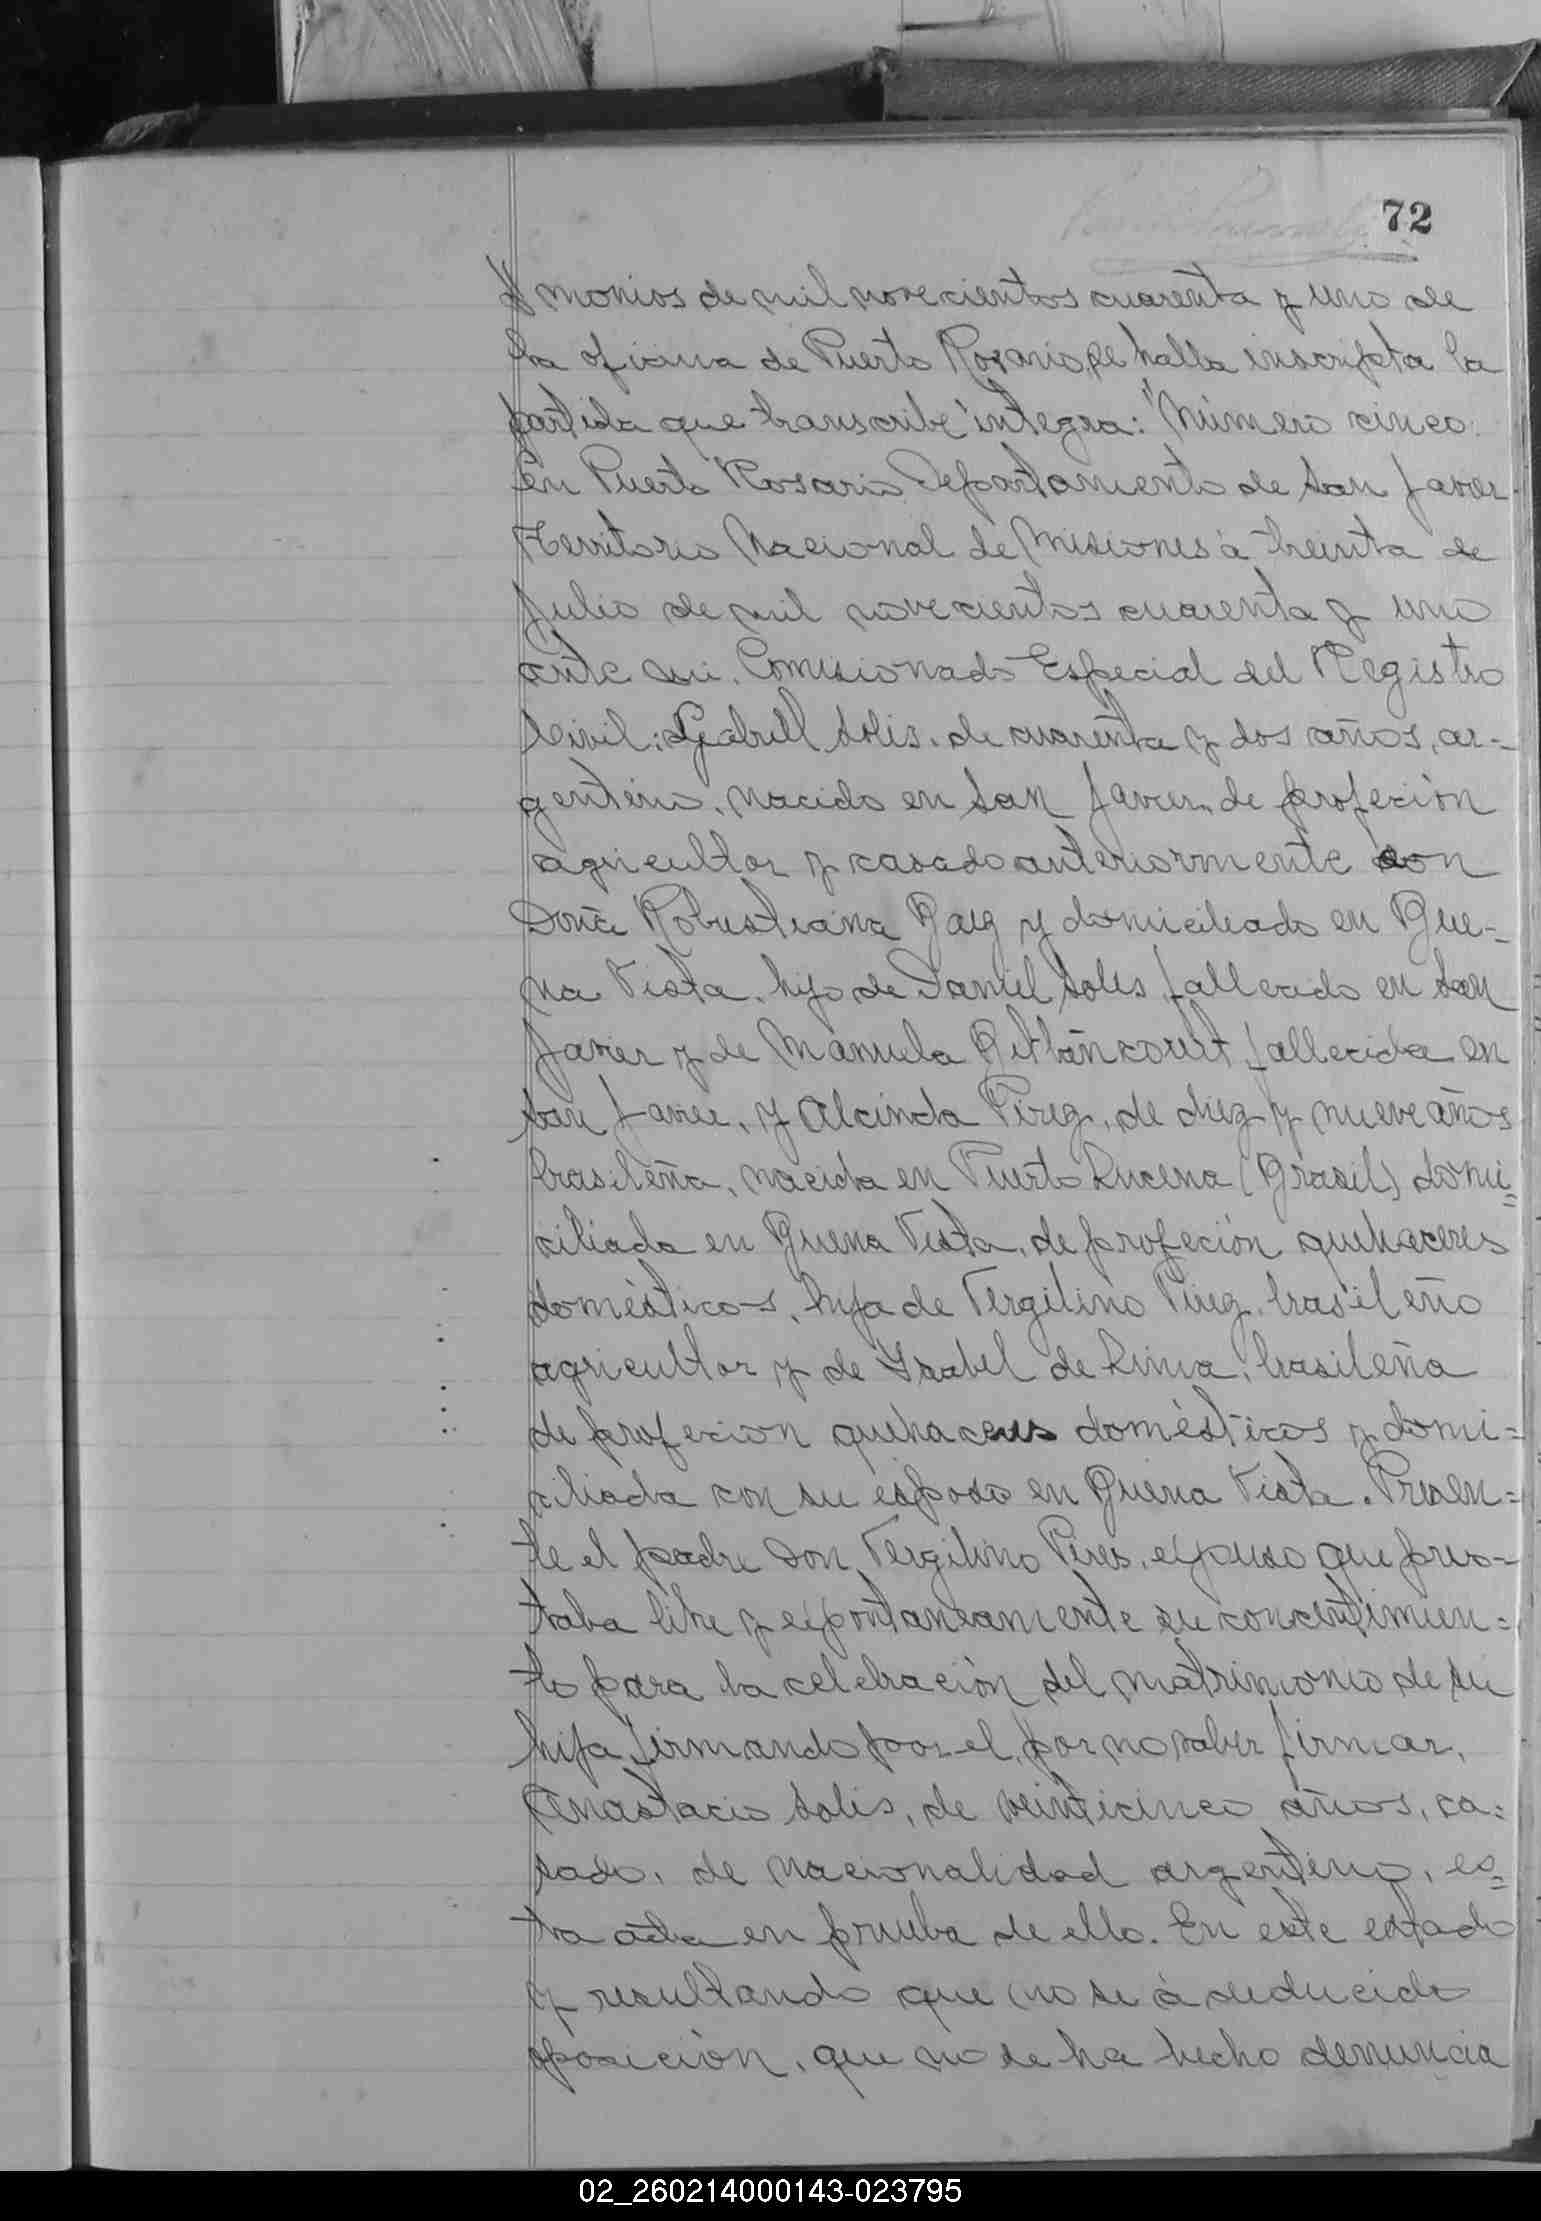 72
monios de mil novecientos cuarenta y uno de
la oficina de Puerto Rosario, se halla inscripta la
partida que transcribe integra: "Número cinco.
En Puerto Rosario Departamento de San Javier
Territorio Nacional de Misiones à treinta de
Julio de mil novecientos cuarenta y uno
ante mi. Comisionado Especial del Registro
Civil: Gabriel Solis. de cuarenta y dos años, ar-
gentino, nacido en San Javier, de profeción
agricultor y casado anteriormente con
Doña Robustiana Baez y domiciliado en Bue-
na Vista. hijo de Daniel Solis, fallecido en San
Javier y de Manuela Bitancourt, fallecida en
San Javier, y Alcinda Pirez, de diez y nueve años
brasileña, nacida en Puerto Lucena (Brasil) domi=
ciliada en Buena Vista, de profeción quehaceres
domésticos, hija de Vergilino Pirez, brasileño
agricultor y de Ysabel de Lima, brasileña
de profecion quehaceres domésticos y domi=
ciliada con su esposo en Buena Vista. Presen=
te el padre Don Vergilino Pires, espuso que pres-
taba libre y espontaneamente su concentimien=
to para la celebración del matrimonio de su
hija firmando por el, por no saber firmar,
Anastacio Solis, de veinticinco años, ca=
sado, de nacionalidad argentino, es=
ta acta en prueba de ello. En este estado
y resultando que no se à deducido
oposición, que no se ha hecho denuncia
02_260214000143-023795